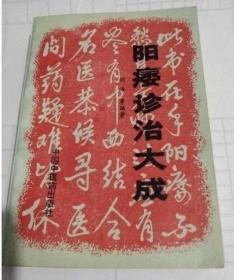 阳痿诊治大成
中国中医药出版社
此书在手阳痿不
然有
尽有 西结合
名医恭候寻医
问药疑难皆休